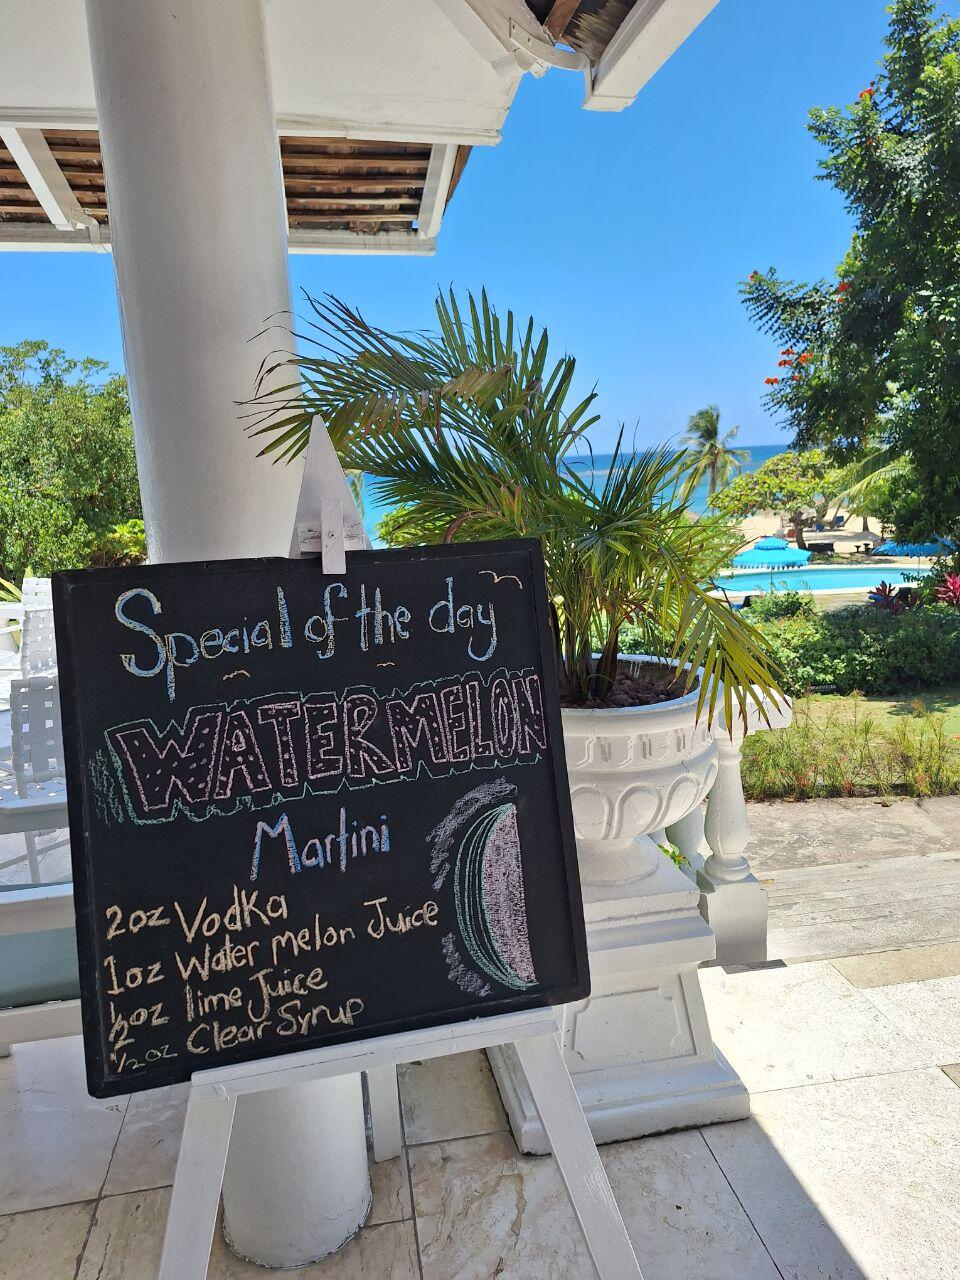 Special of the day
WATERMELON
Martini
2oz Vodka
1oz Water melon Juice
1/2oz lime Juice
1/2oz Clear Syrup